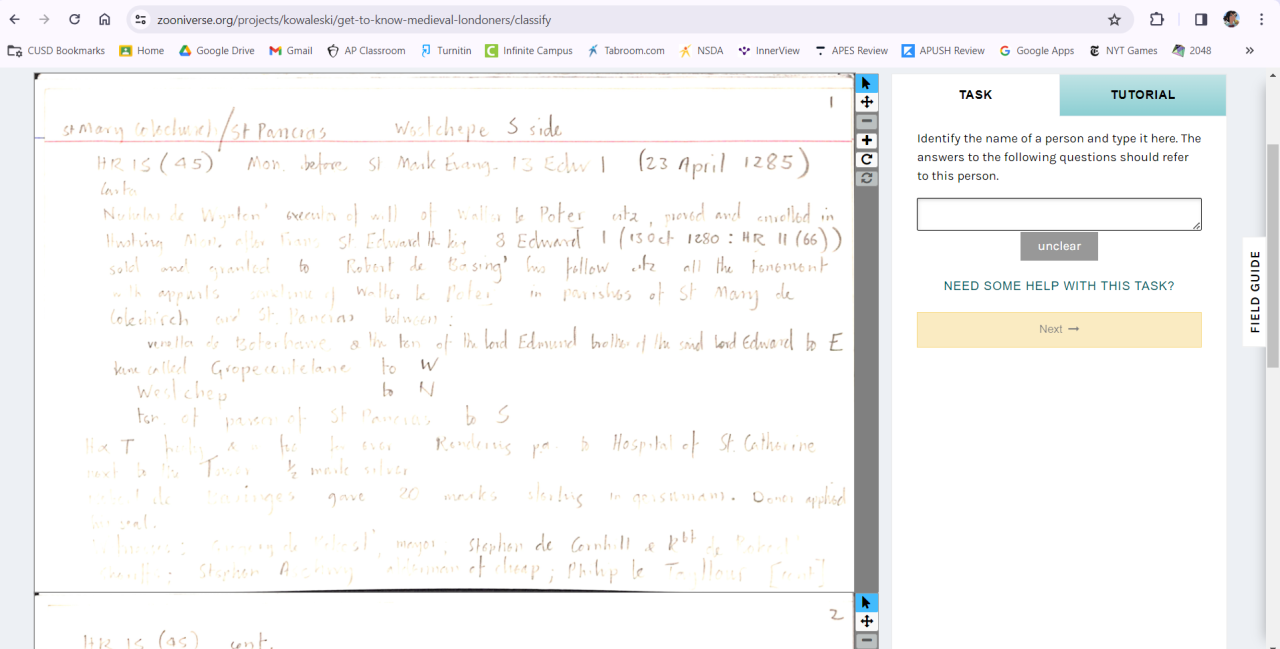 zooniverse.org/projects/kowaleski/get-to-know-medieval-londoners/classify
CUSD Bookmarks Home Google Drive Gmail AP Classroom Turnitin Infinite Campus Tabroom.com NSDA InnerView APES Review APUSH Review Google Apps NYT Games 2048 »
1
St Mary Colechurch/St Pancras Westchepe S side
HR 15 (45) Mon. before St Mark Evang. 13 Edw 1 (23 April 1285)
Carta
Nicholas de Wynton' executor of will of Walter le Poter citz, proved and enrolled in
Husting Mon. after Trans St Edward the kg 8 Edward 1 (13 Oct 1280 : HR 11 (66))
sold and granted to Robert de Basing' his fellow citz all the tenement
with appurts sometime of Walter le Poter in parishes of St Mary de
Colechirch and St. Pancras between:
de & the ten of the lord Edmund brother of the said lord Edward to E
lane called Gropecontelane to W
Westchep to N
ten. of parson of St Pancras to S
T & in fee for ever Rendering to Hospital of St. Catherine
next to the Tower ½ mark silver
Robert de gave 20 marks sterling in gersumam. Donor applied
his seal.
Witnesses: de mayor, Stephen de Cornhill & Rbt de
Stephen alderman of cheap; Philip le [cont]
2
HR 15 (45) cont.
TASK
TUTORIAL
Identify the name of a person and type it here. The
answers to the following questions should refer
to this person.
unclear
NEED SOME HELP WITH THIS TASK?
Next →
FIELD GUIDE